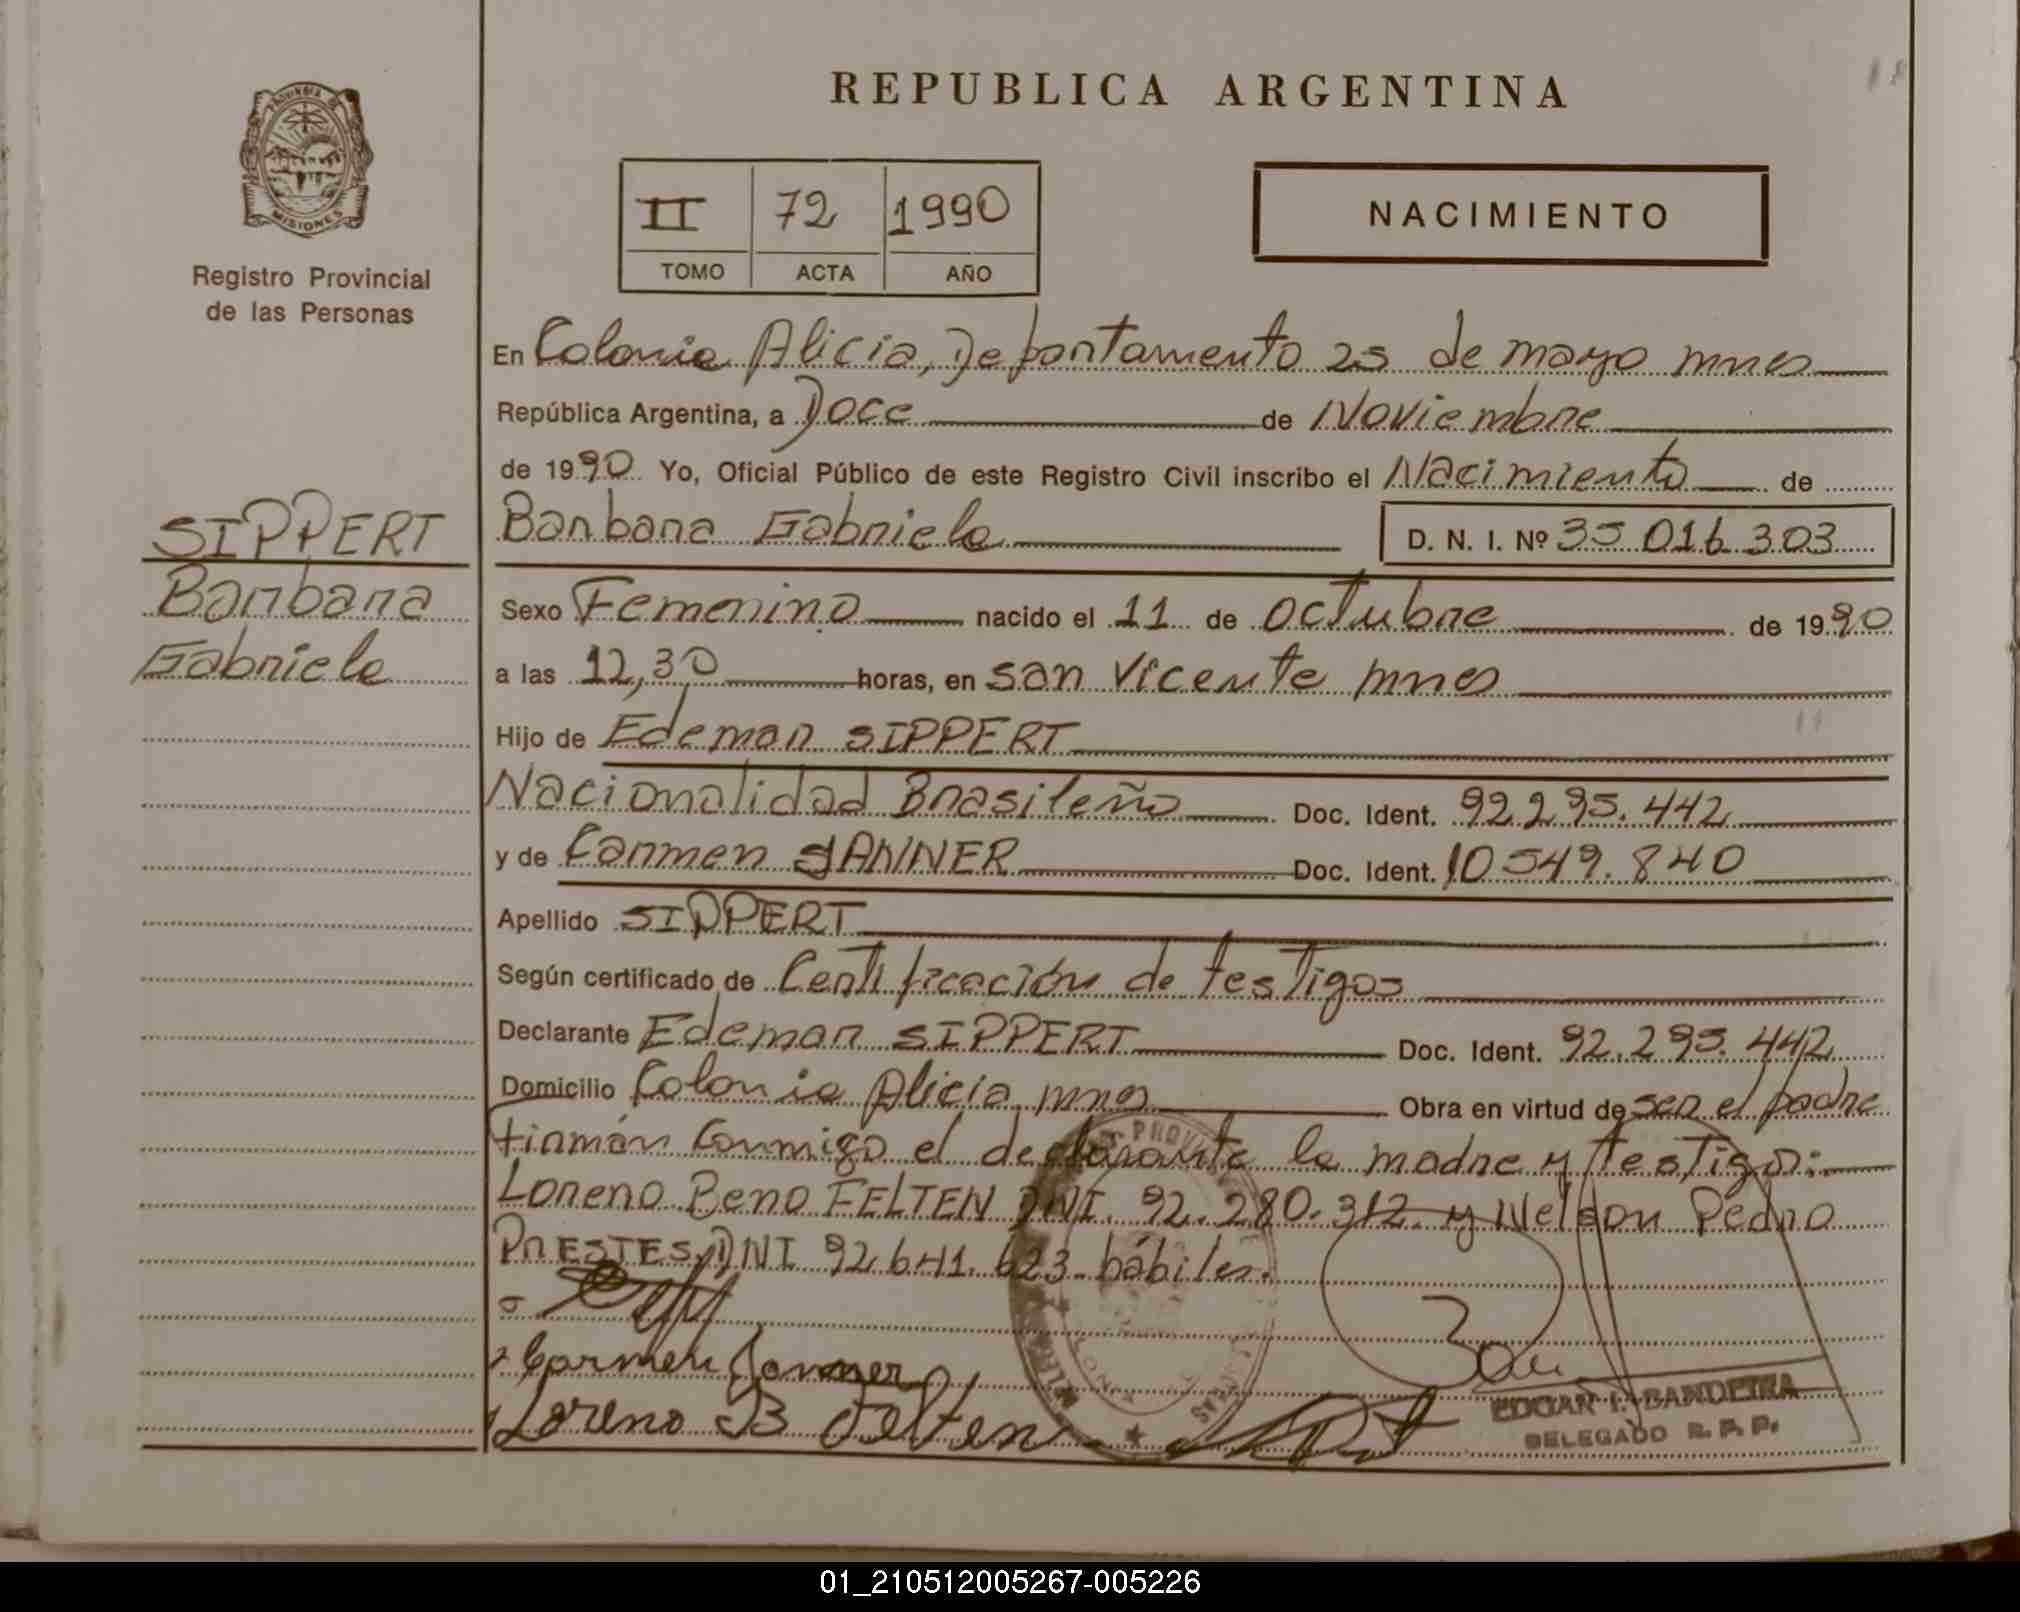 REPUBLICA ARGENTINA
PROVINCIA DE
MISIONES
Registro Provincial
de las Personas
II 72 1990
TOMO ACTA AÑO
NACIMIENTO
En Colonia Alicia, Departamento 25 de mayo mnes
República Argentina, a Doce de Noviembre
de 1990 Yo, Oficial Público de este Registro Civil inscribo el Nacimiento de
Barbara Gabriela D. N. I. Nº 35 016 303
SIPPERT
Barbara
Gabriela
Sexo Femenino nacido el 11 de octubre de 1990
a las 12,30 horas, en san Vicente mnes
Hijo de Edemar SIPPERT
Nacionalidad Brasileño Doc. Ident. 92295.442
y de Carmen JANNER Doc. Ident. 10549.840
Apellido SIPPERT
Según certificado de Certificación de testigos
Declarante Edemar SIPPERT Doc. Ident. 92.295.442
Domicilio Colonia Alicia mnes Obra en virtud de ser el padre
firmán conmigo el declarante la madre y testigos:
Loreno Beno FELTEN DNI. 92.280.312 y Nelson Pedro
PRESTES, DNI 92.641.623 hábiles.
Carmen Janner
Loreno B Felten
EDGAR I. BANDEIRA
DELEGADO R. P. P.
01_210512005267-005226